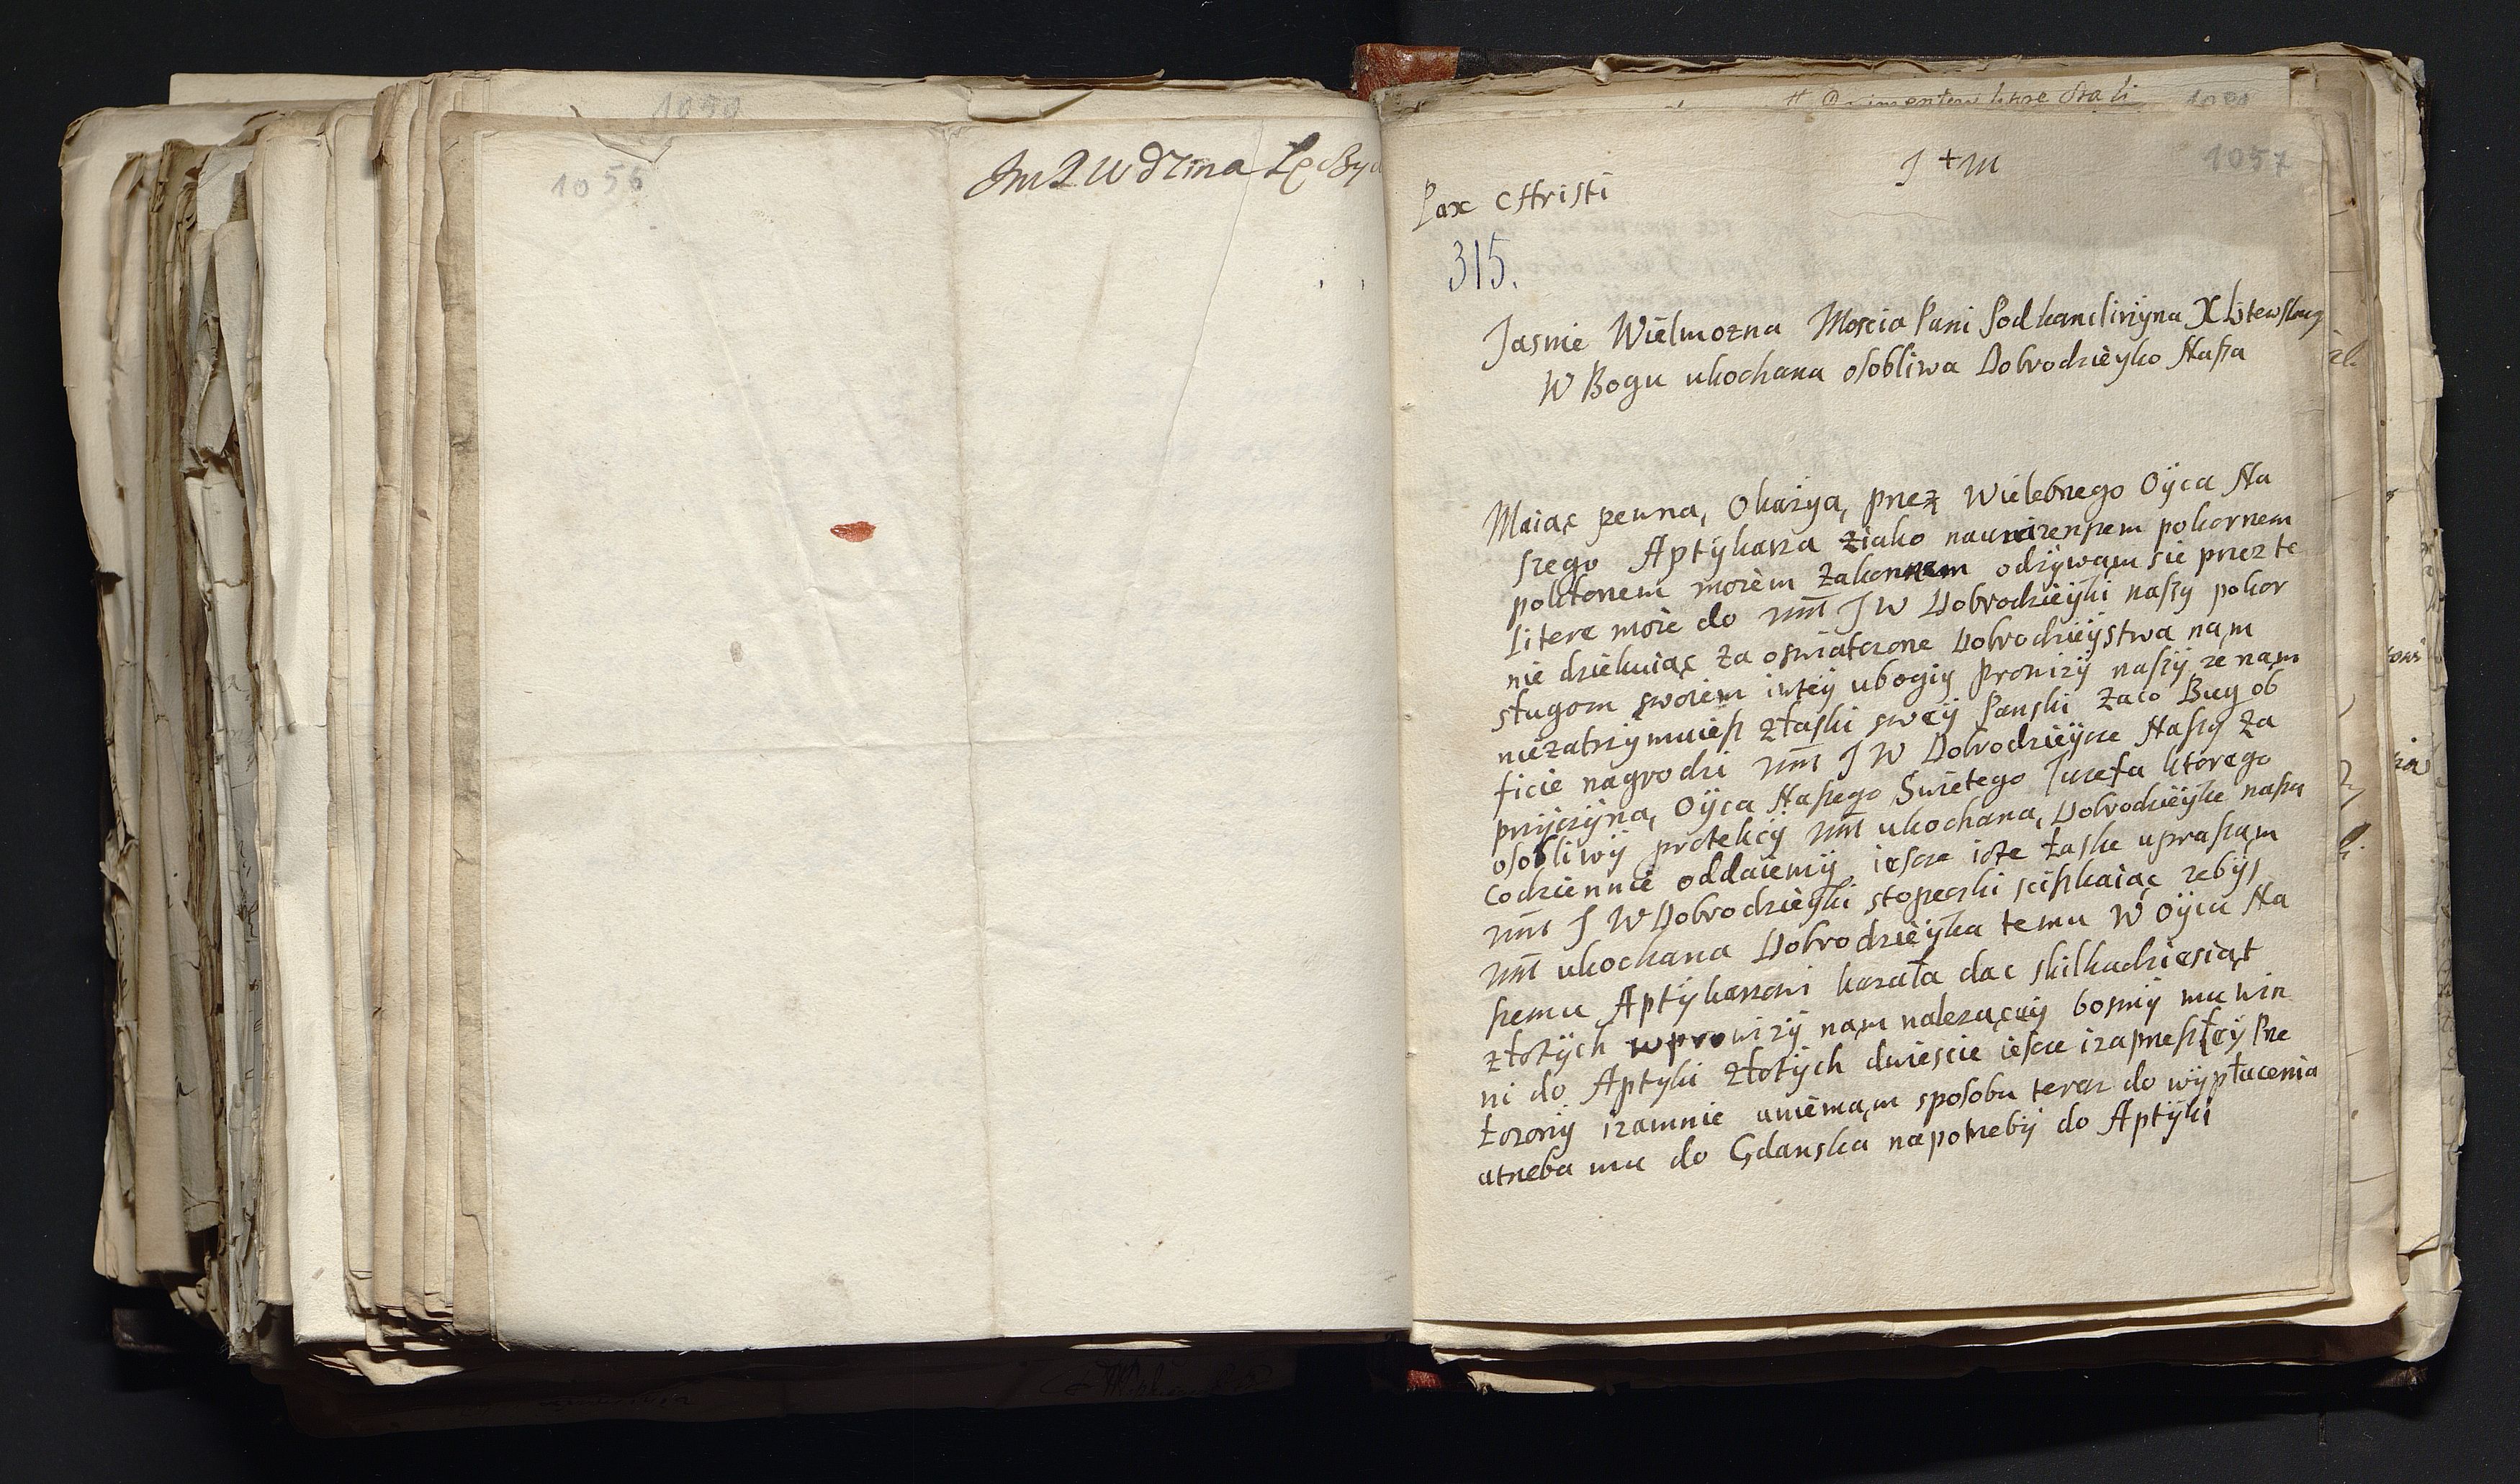 1059
1056
1057
J + M
Pax CHristi
315.
Jasnie Wielmozna Moscia Pani Podkanclirzÿna X Litewskieg
W Bogu ukochana osobliwa Dobrodzieÿko Nasza
Maiąc pewną Okazyą przez Wielebnego Oÿca Na
szego Aptÿkarza ziako naunizenszem pokornem
pokłonem moiem Zakonnem odzÿwam sie przez te
litere moie do WM J W Dobrodzieÿki naszÿ pokor
nie dziekuiąc za oswiatczone Dobrodzieÿstwa nąm
sługom swoiem itteÿ ubogiÿ Prowizÿ naszÿ ze nąm
niezatrzÿmuiesz złaski sweÿ Panski Zaco Bug ob
ficie nagrodzi WM J W Dobrodzieÿce Naszÿ Za
przÿczÿną Oÿca Naszego Swietego Jozefa ktorego
osobliwÿ protekcÿ WM ukochaną Dobrodzieÿke nasza
codziennie oddaiemÿ iescze iote łaske uprasząm
WM J W Dobrodzieÿki stopeczki sciskaiąc zebÿs
WM ukochana Dobrodzieÿka temu W Oÿcu Na
szemu Aptÿkarzowi kazała dac skilkadziesiąt
złotÿch wprowizÿ nąm nalezącÿ bosmÿ mu win
ni do Aptyki złotÿch dwiescie iescze izaprzeszłeÿ Prze
łozonÿ izamnie aniemąm sposobu teraz do wÿpłacenia
atrzeba mu do Gdanska napotrzebÿ do Aptÿki